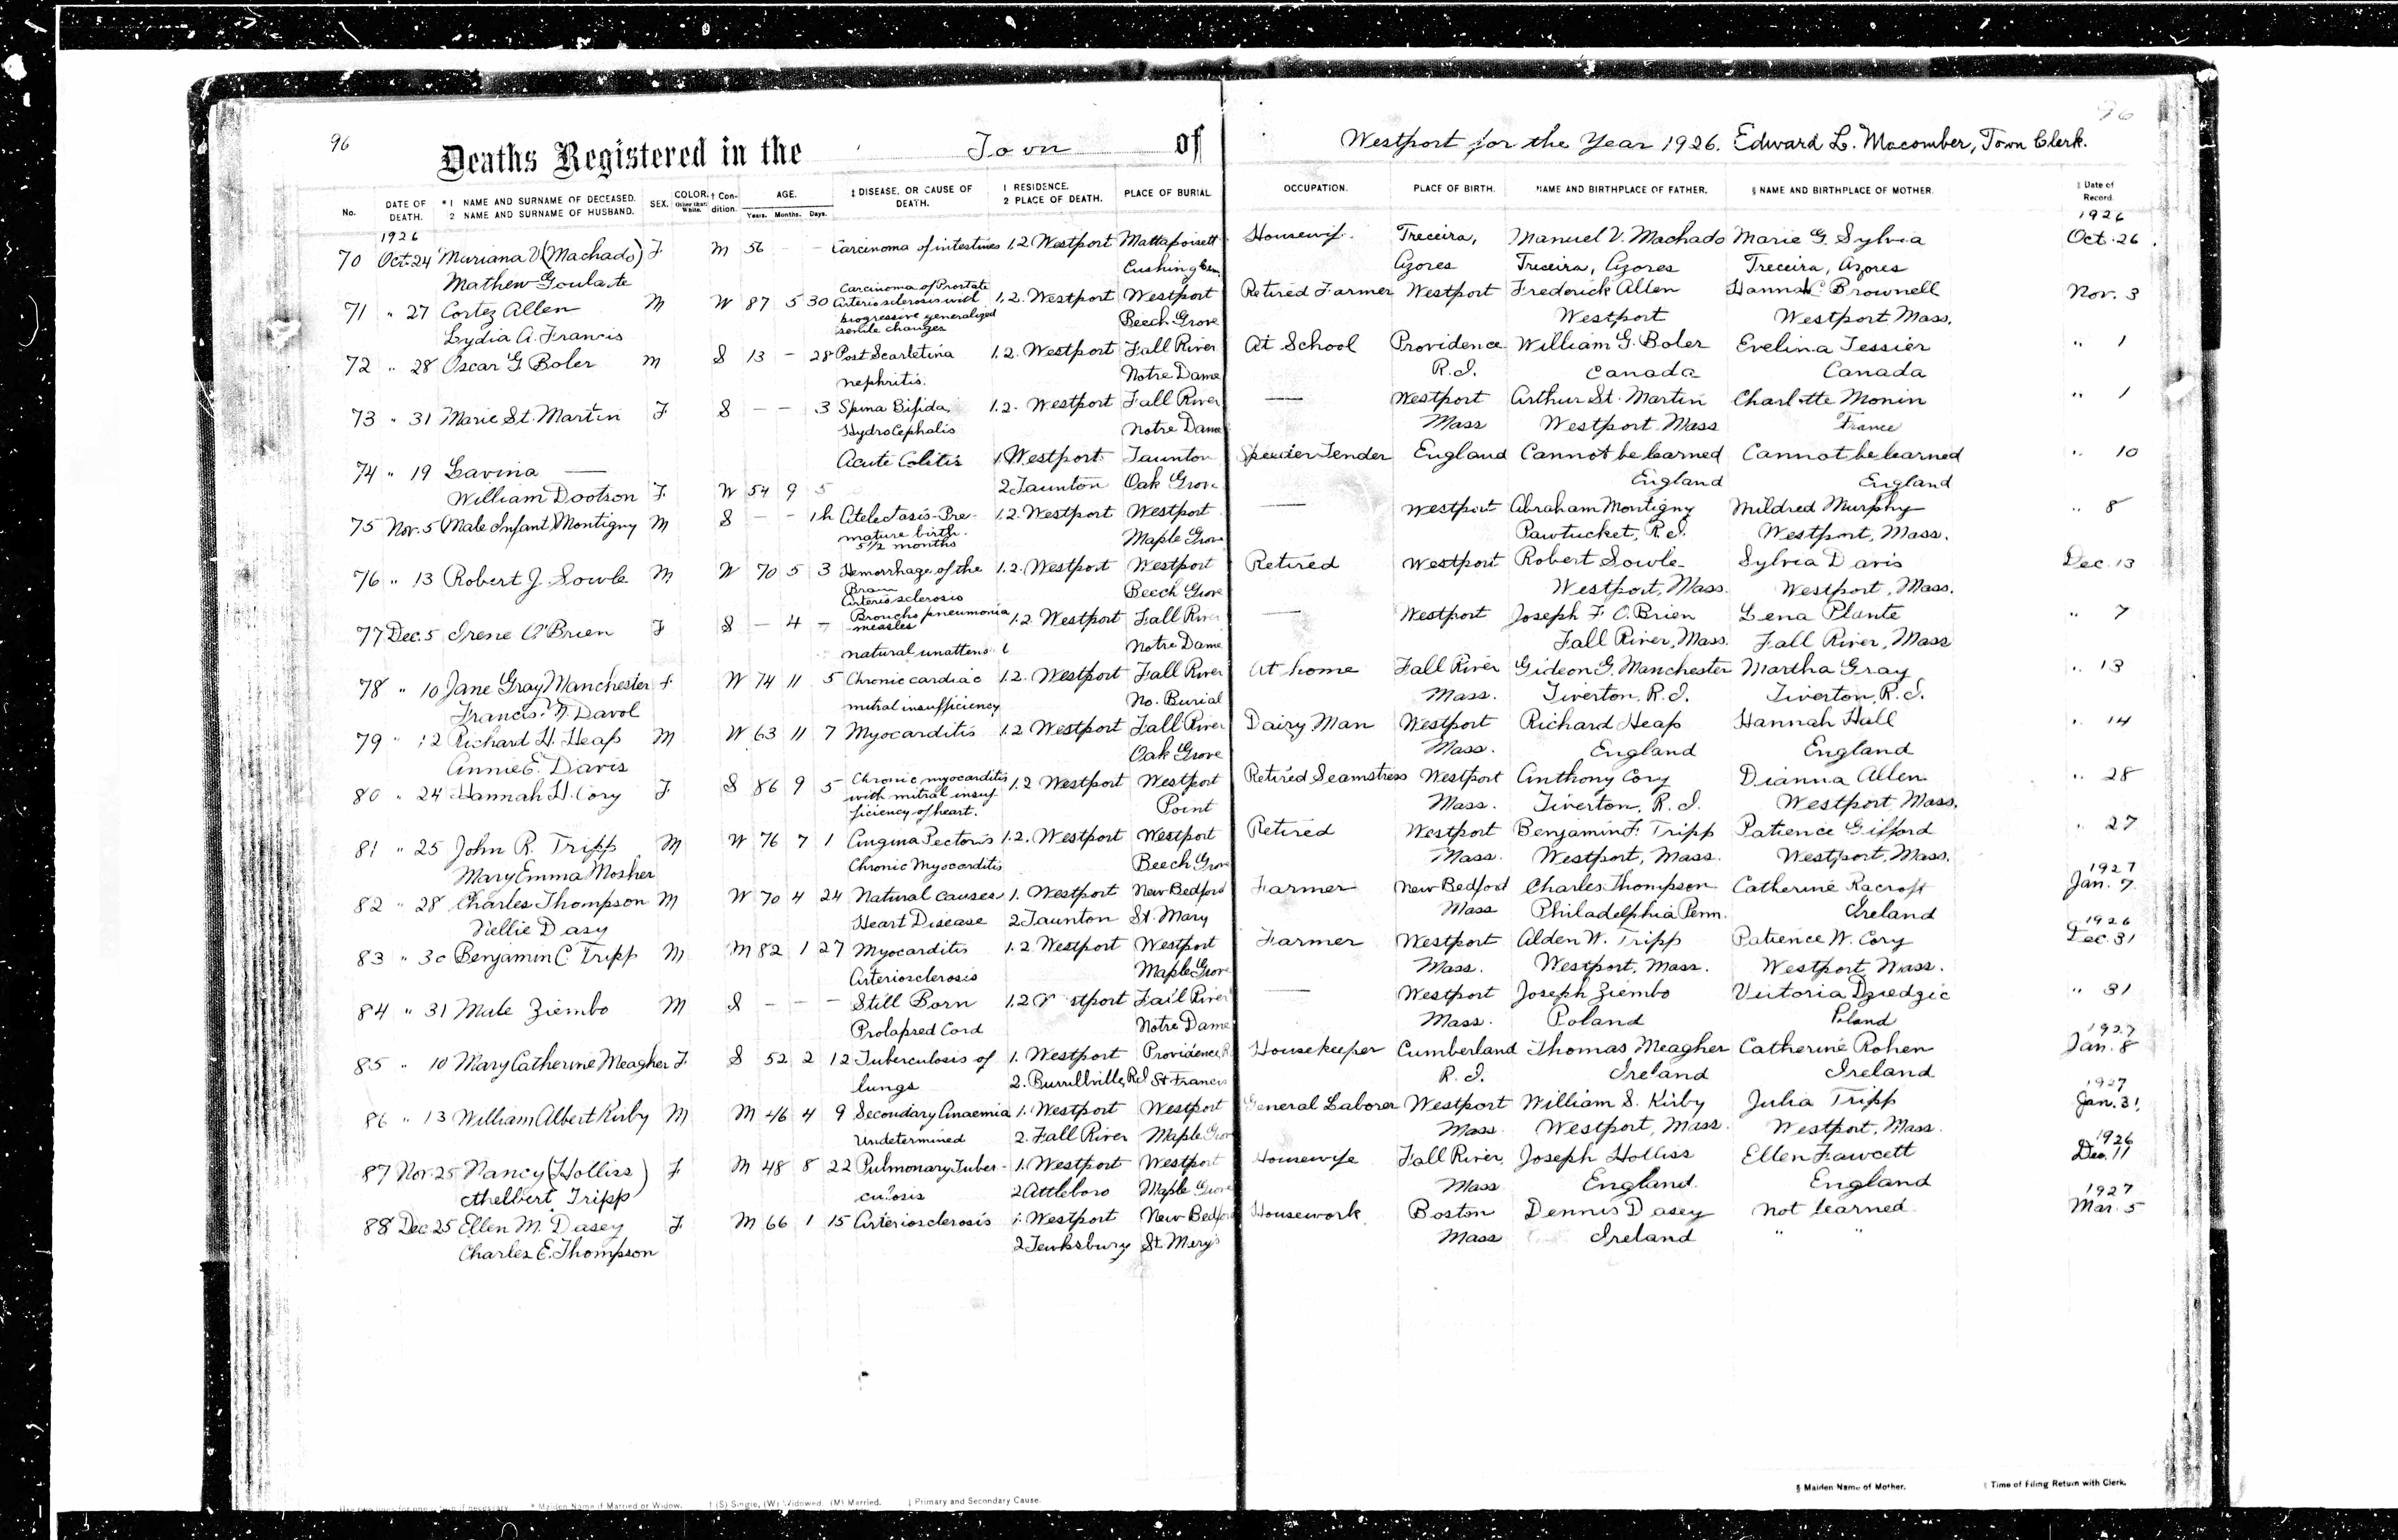 96
96
Deaths Registered in the Town of Westport for the Year 1926. Edward L. Macomber, Town Clerk.
No. DATE OF DEATH. *1 NAME AND SURNAME OF DECEASED. 2 NAME AND SURNAME OF HUSBAND. SEX. COLOR. Other than White. † Condition. AGE. Years. Months. Days. ‡ DISEASE, OR CAUSE OF DEATH. 1 RESIDENCE. 2 PLACE OF DEATH. PLACE OF BURIAL. OCCUPATION. PLACE OF BIRTH. NAME AND BIRTHPLACE OF FATHER. § NAME AND BIRTHPLACE OF MOTHER. ‖ Date of Record.
1926 1926
70 Oct. 24 Mariana V (Machado) F M 56 - - Carcinoma of intestines 1.2. Westport Mattapoisett Housewife. Treceira, Manuel V. Machado Marie G. Sylvia Oct. 26
Mathew Goularte Cushing Cem. Azores Treceira, Azores Treceira, Azores
71 " 27 Cortez Allen M W 87 5 30 Carcinoma of Prostate Arteriosclerosis with progressive generalized senile changes 1.2. Westport Westport Retired Farmer Westport Frederick Allen Hannah C Brownell Nov. 3
Lydia A. Francis Beech Grove Westport Westport Mass.
72 " 28 Oscar G Boler M S 13 - 28 Post Scarletina 1.2. Westport Fall River At School Providence William G. Boler Evelina Tessier " 1
nephritis. Notre Dame R.I. Canada Canada
73 " 31 Marie St. Martin F S - - 3 Spina Bifida, 1.2. Westport Fall River — Westport Arthur St. Martin Charlotte Monin " 1
HydroCephalis Notre Dame Mass Westport Mass France
74 " 19 Lavina — Acute Colitis 1 Westport Taunton Speeder Tender England Cannot be learned Cannot be learned " 10
William Dootson F W 54 9 5 2 Taunton Oak Grove England England
75 Nov. 5 Male Infant Montigny M S - - 1h Atelectasis-Pre- 1.2. Westport Westport — Westport Abraham Montigny Mildred Murphy " 8
mature birth. 5½ months Maple Grove Pawtucket, R.I. Westport, Mass.
76 " 13 Robert J. Sowle M W 70 5 3 Hemorrhage of the 1.2. Westport Westport Retired Westport Robert Sowle Sylvia Davis Dec. 13
Brain Arteriosclerosis Beech Grove Westport, Mass. Westport, Mass.
77 Dec. 5 Irene O'Brien F S - 4 - Broncho pneumonia measles 1.2. Westport Fall River — Westport Joseph F. O'Brien Lena Plante " 7
natural unattend Notre Dame Fall River, Mass. Fall River, Mass
78 " 10 Jane Gray Manchester F W 74 11 5 Chronic cardiac 1.2. Westport Fall River At home Fall River Gideon G. Manchester Martha Gray " 13
Francis Davol mitral insufficiency No. Burial Mass. Tiverton, R.I. Tiverton, R.I.
79 " 12 Richard H. Heap M W 63 11 7 Myocarditis 1.2 Westport Fall River Dairy Man Westport Richard Heap Hannah Hall " 14
Annie E. Davis Oak Grove Mass. England England
80 " 24 Hannah H. Cory F S 86 9 5 Chronic myocarditis with mitral insuf 1.2 Westport Westport Retired Seamstress Westport Anthony Cory Dianna Allen " 28
ficiency of heart. Point Mass. Tiverton, R.I. Westport, Mass.
81 " 25 John R. Tripp M W 76 7 1 Angina Pectoris 1.2. Westport Westport Retired Westport Benjamin F. Tripp Patience Gifford " 27
Mary Emma Mosher Chronic Myocarditis Beech Grove Mass. Westport, Mass. Westport, Mass.
1927
82 " 28 Charles Thompson M W 70 4 24 Natural causes 1. Westport New Bedford Farmer New Bedford Charles Thompson Catherine Racroft Jan. 7
Nellie Dasy Heart Disease 2 Taunton St. Mary Mass Philadelphia Penn. Ireland
1926
83 " 30 Benjamin C Tripp M M 82 1 27 Myocarditis 1.2 Westport Westport Farmer Westport Alden W. Tripp Patience W. Cory Dec. 31
Arteriosclerosis Maple Grove Mass. Westport, Mass. Westport, Mass.
84 " 31 Male Ziembo M S - - - Still Born 1.2 Westport Fall River — Westport Joseph Ziembo Victoria Dziedzic " 31
Prolapsed Cord Notre Dame Mass. Poland Poland
1927
85 " 10 Mary Catherine Meagher F S 52 2 12 Tuberculosis of 1. Westport Providence, R Housekeeper Cumberland Thomas Meagher Catherine Rohen Jan. 8
lungs 2. Burrillville, R.I St Francis R.I. Ireland Ireland
1927
86 " 13 William Albert Kirby M M 46 4 9 Secondary Anaemia 1. Westport Westport General Laborer Westport William S. Kirby Julia Tripp Jan. 31
Undetermined 2. Fall River Maple Grove Mass. Westport, Mass. Westport, Mass.
1926
87 Nov. 25 Nancy (Holliss) F M 48 8 22 Pulmonary Tuber- 1. Westport Westport Housewife Fall River, Joseph Holliss Ellen Fawcett Dec. 11
Ethelbert Tripp culosis 2 Attleboro Maple Grove Mass England. England
1927
88 Dec. 25 Ellen M. Dasey F M 66 1 15 Arteriosclerosis 1. Westport New Bedford Housework. Boston Dennis Dasey not learned Mar. 5
Charles E. Thompson 2 Tewksbury St. Mery's Mass Ireland " "
* Maiden Name if Married or Widow. † (S) Single, (W) Widowed, (M) Married. ‡ Primary and Secondary Cause. § Maiden Name of Mother. ‖ Time of Filing Return with Clerk.